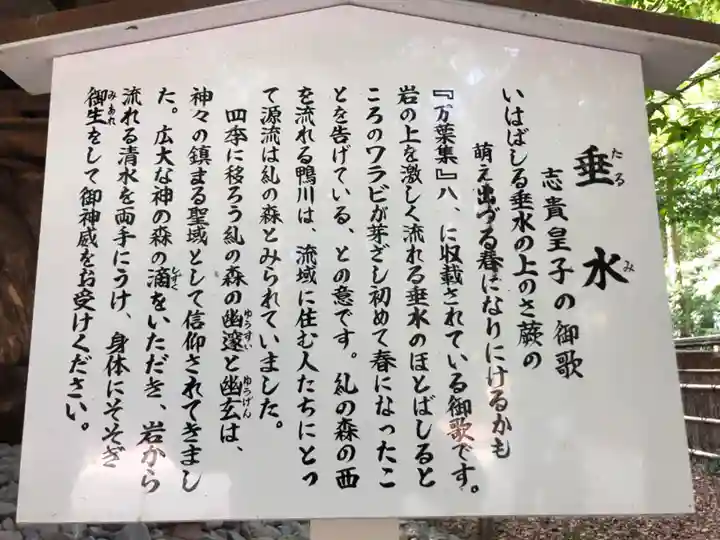 垂水
たる み
志貴皇子の御歌
いはばしる垂水の上のさ蕨の
萌え出づる春になりにけるかも
『万葉集』八、に収載されている御歌です。
岩の上を激しく流れる垂水のほとばしると
ころのワラビが芽ざし初めて春になったこ
とを告げている、との意です。糺の森の西
を流れる鴨川は、流域に住む人たちにとっ
て源流は糺の森とみられていました。
四季に移ろう糺の森の幽邃と幽玄は、
ゆうすい ゆうげん
神々の鎮まる聖域として信仰されてきまし
た。広大な神の森の滴をいただき、岩から
しずく
流れる清水を両手にうけ、身体にそそぎ
御生をして御神威をお受けください。
みあれ